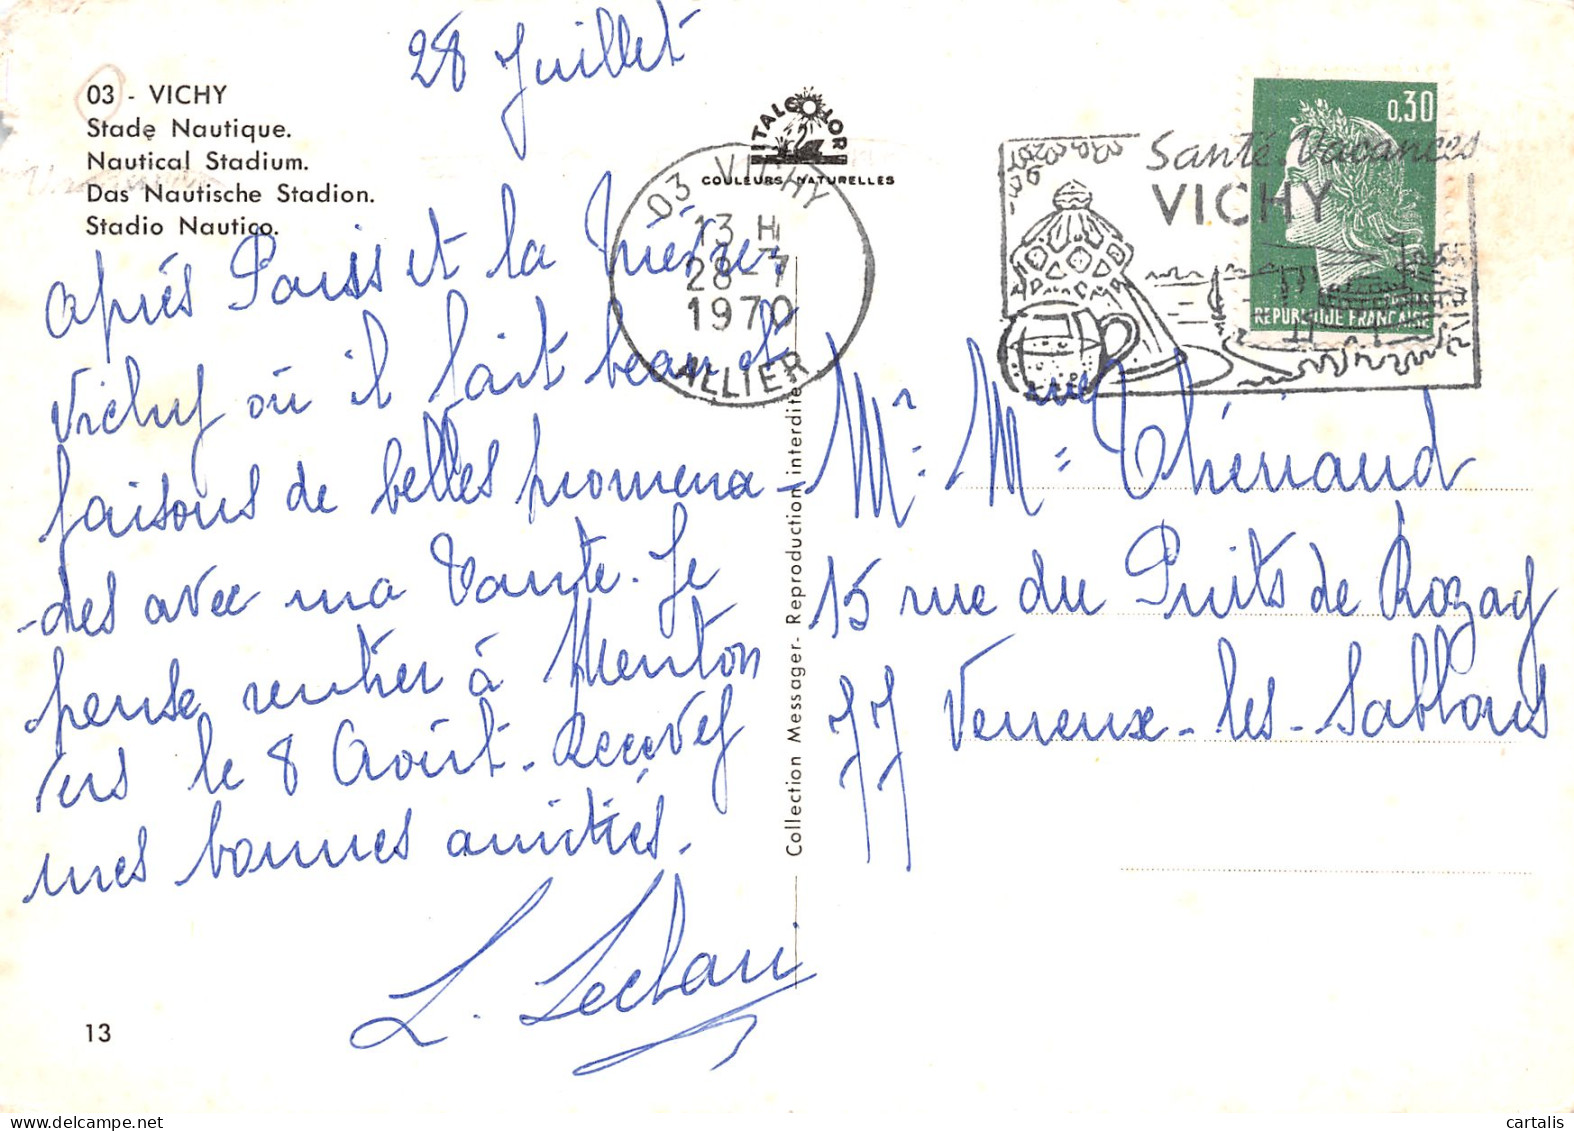 28 Juillet
03 - VICHY
Stade Nautique.
Nautical Stadium.
Das Nautische Stadion.
Stadio Nautico.
ITALCOLOR
COULEURS NATURELLES
03 VICHY
13 H
28-7
1970
ALLIER
Santé. Vacances
VICHY
0,30
REPUBLIQUE FRANCAISE
après Paris et la Nièvre,
Vichy où il fait beau et
faisons de belles promena-
-des avec ma Tante. Je
pense rentrer à Menton
vers le 8 Août. Recevez
mes bonnes amitiés.
Collection Messager - Reproduction interdite
Mr. Mme = Thériaud
15 rue du Puits de Rozay
77 Veneux-les-Sablons
13
cartalis